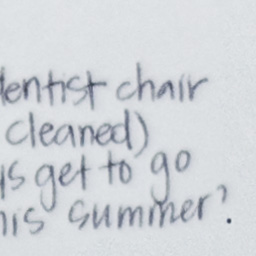 dentist chair
cleaned)
ys get to go
his summer?.